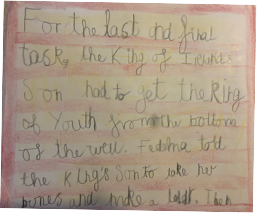 For the last and final
task, the King of Irelands
Son had to get the Ring
of Youth from the bottom
of the well. Fedelma told
the King's Son to take her
bones and make a ladder. Then